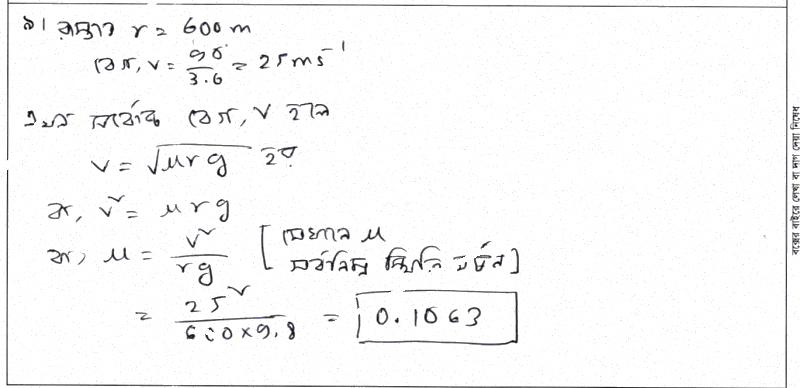 ৯। রাস্তার r = 600 m
বেগ, v = 90/3.6 = 25 ms⁻¹
এখন সর্বোচ্চ বেগ, v হলে
v = √μrg হয়
বা, v² = μrg
বা, μ = v²/rg [যেখানে μ
সর্বনিম্ন স্থিতি ঘর্ষন]
= 25²/600×9.8 = 0.1063
বক্সের বাইরে লেখা বা দাগ দেয়া নিষেধ